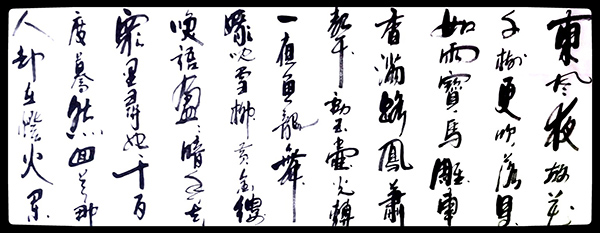 東風夜放花
千樹更吹落星
如雨寶馬雕車
香滿路鳳簫
聲動玉壺光轉
一夜魚龍舞
蛾兒雪柳黃金縷
笑語盈盈暗香去
眾里尋他千百
度驀然回首那
人卻在燈火闌